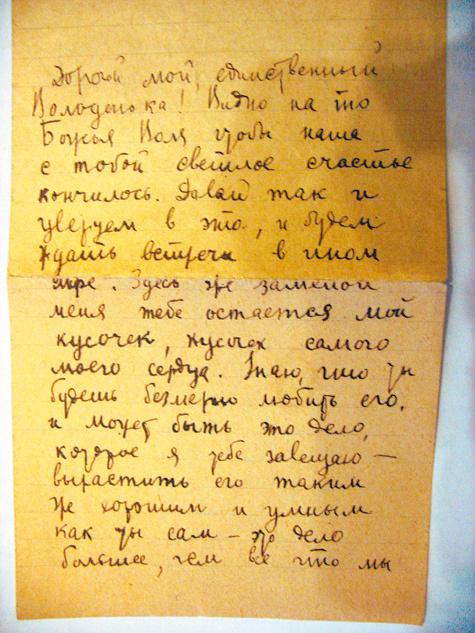 Дорогой мой, единственный
Володенька! Видно на то
Божья Воля чтобы наша
с тобой светлое счастье
кончилось. Давай так и
уверуем в это, и будем
ждать встречи в ином
мире. Здесь же заменой
меня тебе остается мой
кусочек, кусочек самого
моего сердца. Знаю, что ты
будешь безмерно любить его,
и может быть это дело,
которое я тебе завещаю —
вырастить его таким
же хорошим и умным
как ты сам — это дело
большее, чем все что мы